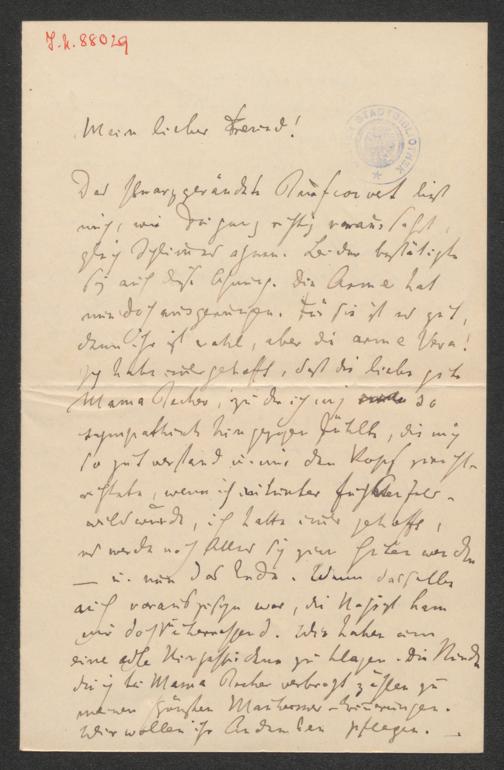 J.N. 88029
STADTBIBLIOTHEK
Mein lieber Freund!
Das schwarzgeränderte Couvert ließ
mich, wie Du ganz richtig voraussahst,
gleich Schlimmes ahnen. Leider bestätigte
sich auch diese Ahnung. Die Arme hat
nun doch ausgerungen. Für sie ist es gut,
denn ihr ist wohl, aber die arme Vera!
Ich habe immer gehofft, daß die liebe gute
Mama, zu der ich mich so
sympathisch hingezogen fühlte, die mich
so gut verstand u. mir den Kopf zurecht-
richtete, wenn ich mitunter
wild wurde, ich hatte immer gehofft,
es werde noch Alles sich zum Guten wenden
— u. nun das Ende. Wenn dasselbe
auch vorauszusehen war, die Nachricht kam
mir doch überraschend. Wir haben nun
eine edle zu klagen. Die Stunden
die ich bei Mama verbracht zählen zu
meinen schönsten Erinnerungen.
Wir wollen ihr Andenken pflegen. —